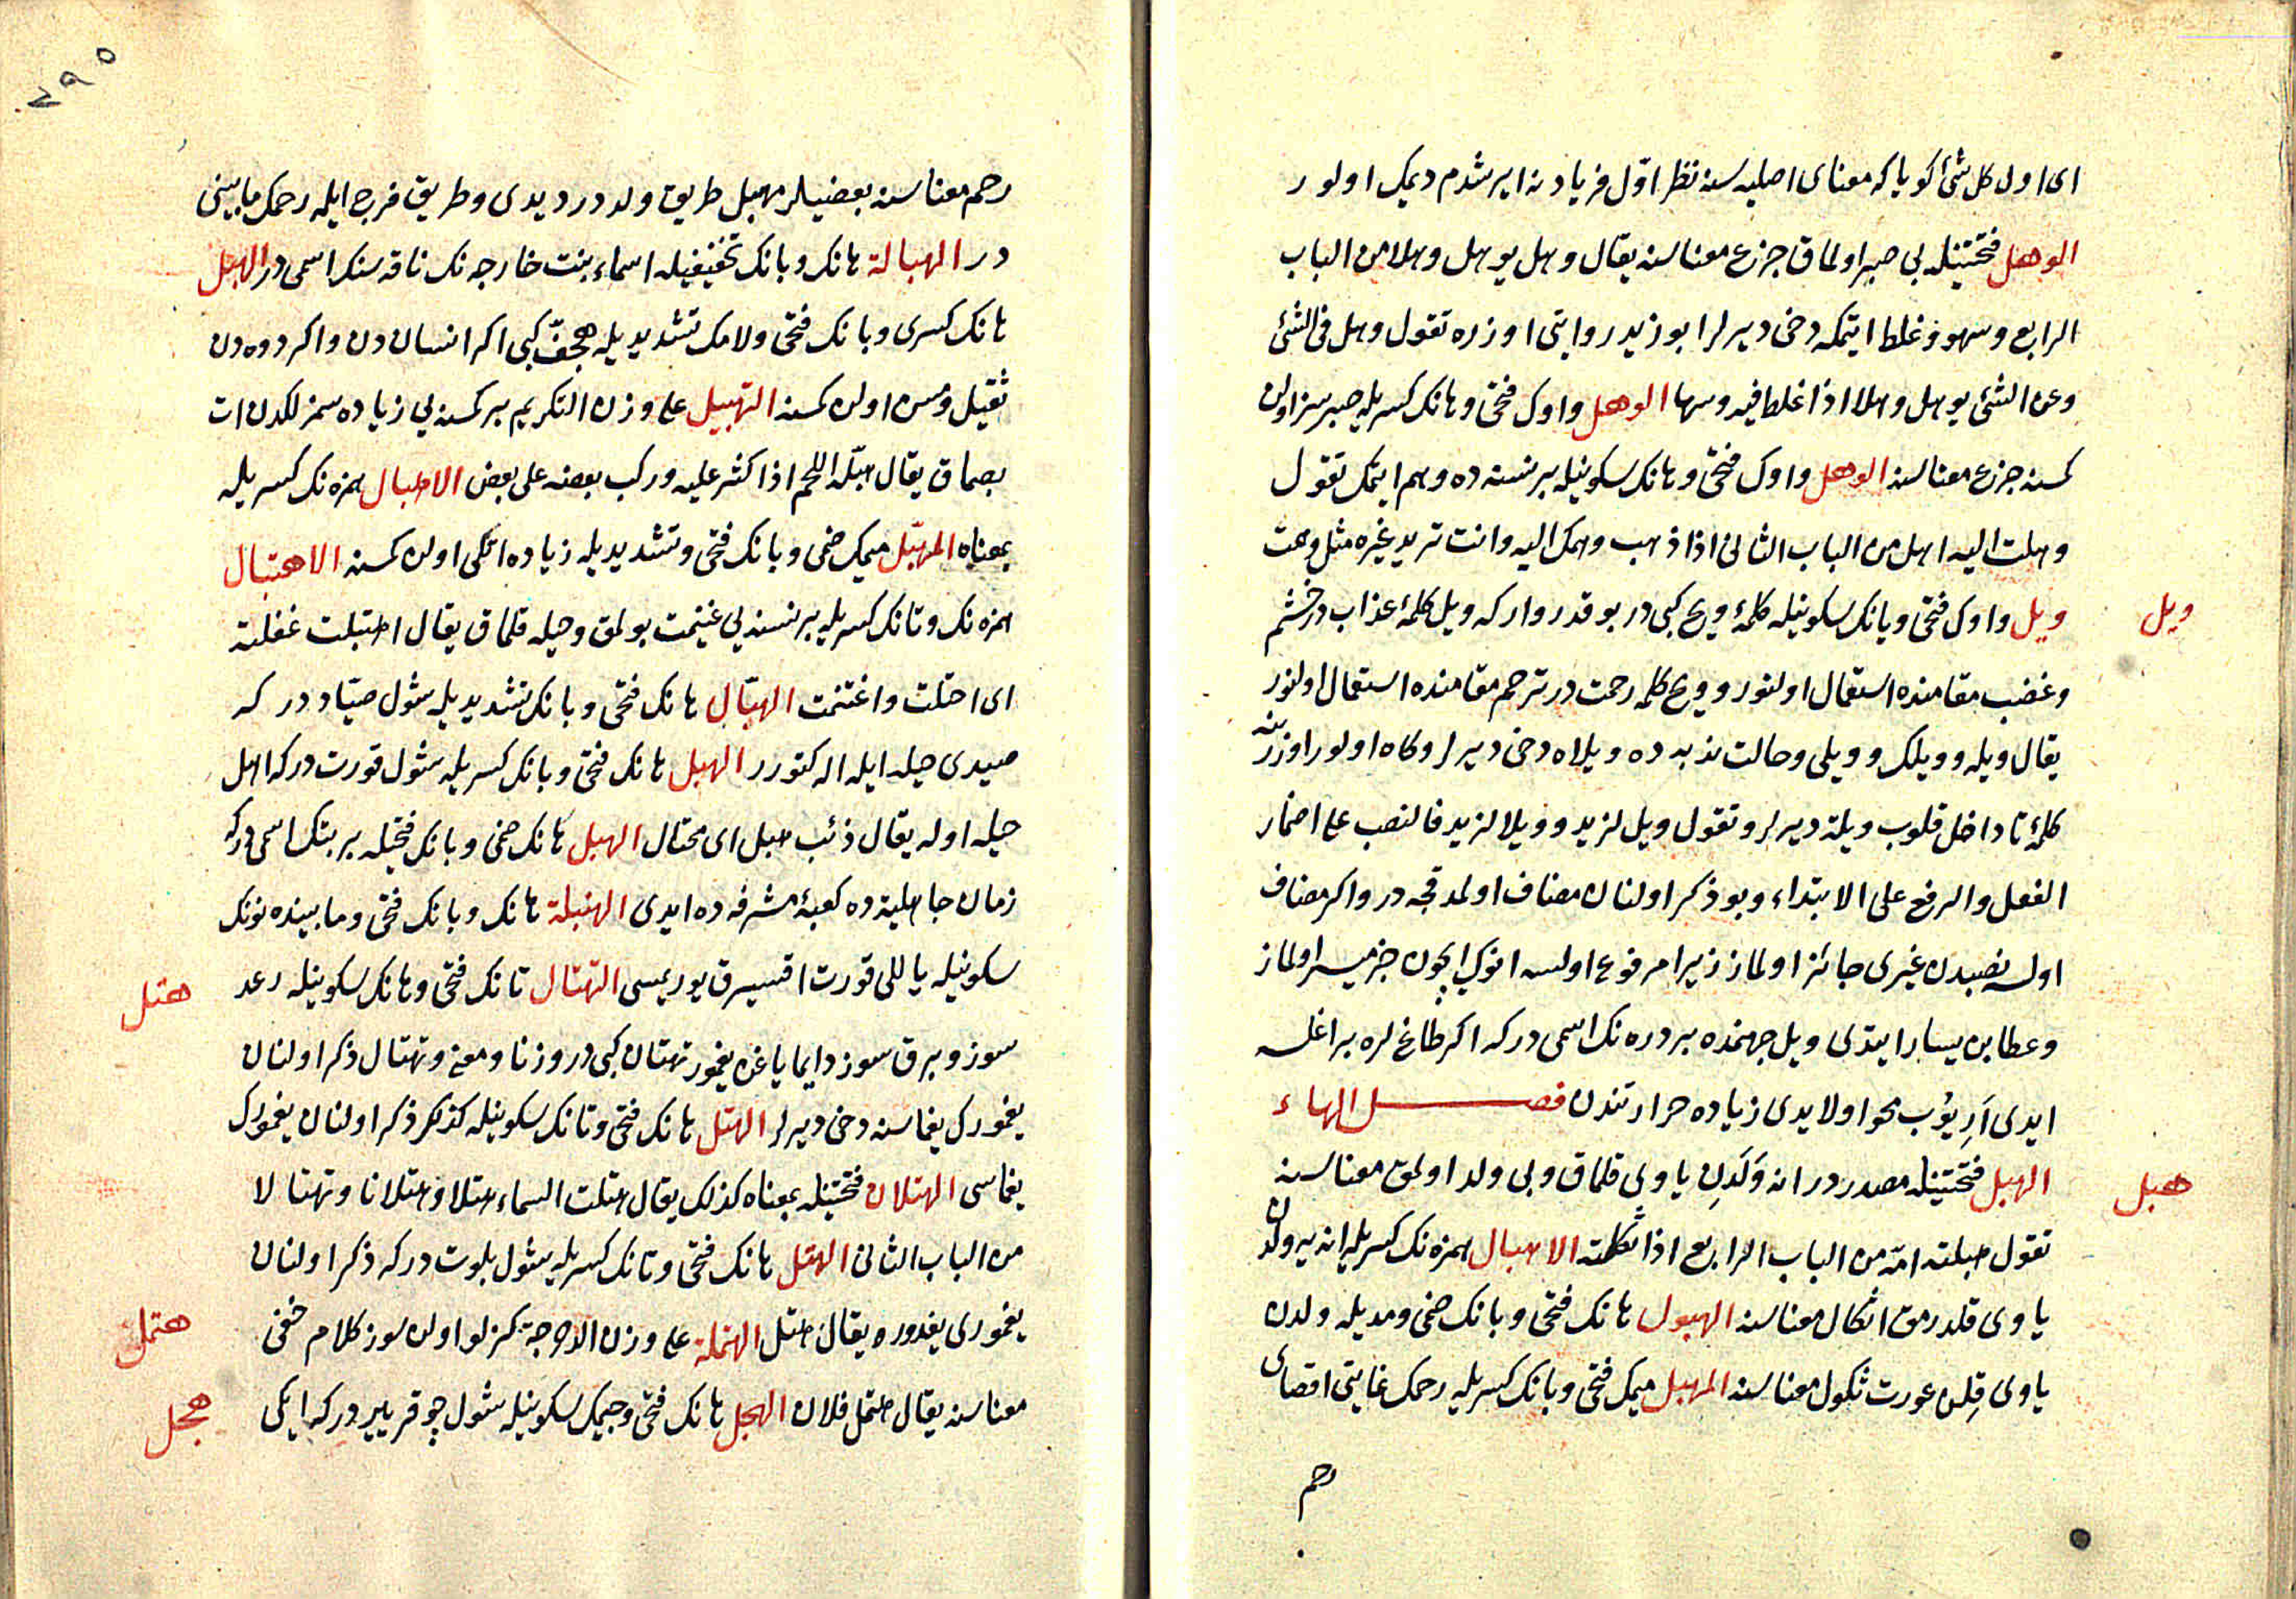 ای اول كل شئ كویا كه معنای اصلیه سنه نظر اوّل فریادنه ایرشدم دیمك اولور
الوهل فتحتینله بی صبر اولماق جزع معناسنه یقال وهل یوهل وهلا من الباب
الرابع وسهو وغلط ایتمكه دخی دیرلر ابو زید روایتی اوزره تقول وهل فی الشئ
وعن الشئ یوهل وهلا اذا غلط فیه وسها الوهل واوك فتحی وهانك كسریله صبرسز اولن
كمسنه جزع معناسنه الوهل واوك فتحی وهانك سكونیله بر نسنه ده وهم ایتمك تقول
وهلت الیه اهل من الباب الثانی اذا ذهب وهمك الیه وانت ترید غیره مثل وهمت
ویل
ویل واوك فتحی ویانك سكونیله كلمهٔ ویح كبی در بو قدر وار كه ویل كلمهٔ عذاب در خشم
وغضب مقامنده استعمال اولنور وویح كلمه رحمت در ترحم مقامنده استعمال اولنور
یقال ویله وویلك وویلی وحالت ندبه ده ویلاه دخی دیرلر وكاه اولور اوزرینه
كلمهٔ تا داخل قلوب ویلة دیرلر وتقول ویل لزید وویلا لزید فالنصب علی اضمار
الفعل والرفع علی الابتداء وبو ذكر اولنان مضاف اولمدقجه در واكر مضاف
اولسه نصبدن غیری جائز اولماز زیرا مرفوع اولسه انوك ایچون خبر میسر اولماز
وعطا بن یسار ایتدی ویل جهنمده بر دره نك اسمی در كه اكر طاغلره براغلسه
ایدی اَرِیوُب محو اولایدی زیاده حرارتندن فصل الهاء
هبل
الهبل فتحتینله مصدردر انه وَلَدِن یاوی قلماق وبی ولد اولمق معناسنه
تقول هبلته امّه من الباب الرابع اذا ثكلته الاهبال همزه نك كسریله انه یه ولدن
یاوی قلدرمق اثكال معناسنه الهبول هانك فتحی وبانك ضمی ومدیله ولدن
یاوی قِلن عورت ثكول معناسنه المهبل میمك فتحی وبانك كسریله رحمك غایتی اقصای
رحم
٢٩٥
رحم معناسنه بعضیلر مهبل طریق ولددر دیدی وطریق فرج ایله رحمك مابینی
در الهبالة هانك وبانك تخفیفیله اسماء بنت خارجه نك ناقه سنك اسمی در الهبل
هانك كسری وبانك فتحی ولامك تشدیدیله هجفّ كبی اكر انساندن واكر دوه دن
ثقیل ومسن اولن كمسنه التهبیل علی وزن التكریم بر كمسنه یی زیاده سمزلكدن ات
بصماق یقال هبّله اللحم اذا كثر علیه وركب بعضه علی بعض الاهبال همزه نك كسریله
بمعناه المهبّل میمك ضمی وبانك فتحی وتشدیدیله زیاده اتلی اولن كمسنه الاهتبال
همزه نك وتانك كسریله بر نسنه یی غنیمت بولمق وحیله قلماق یقال اهتبلت غفلته
ای احتلت واغتنمت الهبّال هانك فتحی وبانك تشدیدیله شول صیّاددر كه
صیدی حیله ایله اله كتورر الهبل هانك فتحی وبانك كسریله شول قورت در كه اهل
حیله اوله یقال ذئب هبل ای محتال الهبل هانك ضمی وبانك فتحیله بر بتك اسمی در كه
زمان جاهلیة ده كعبهٔ مشرفه ده ایدی الهنبلة هانك وبانك فتحی ومابینده نونك
سكونیله یاللی قورت اقسیرق یوریمسی
هتل
التهتال تانك فتحی وهانك سكونیله رعد
سوز وبرق سوز دایما یاغن یغمور تهتان كبی در وزنا ومعنی وتهتال ذكر اولنان
یغمورك یغماسنه دخی دیرلر الهتل هانك فتحی وتانك سكونیله كذلك ذكر اولنان یغمورك
یغماسی الهتلان فتحتینله بمعناه كذلك یقال هتلت السماء هتلا وهتلانا وتهتالا
من الباب الثانی الهتل هانك فتحی وتانك كسریله شول بلوت در كه ذكر اولنان
هتمل
یغموری یغدوره یقال هتل الهتملة علی وزن الدحرجة كزلو اولن سوز كلام خفی
هجل
معناسنه یقال هتمل فلان الهجل هانك فتحی وجیمك سكونیله شول چوقر یر در كه ایكی